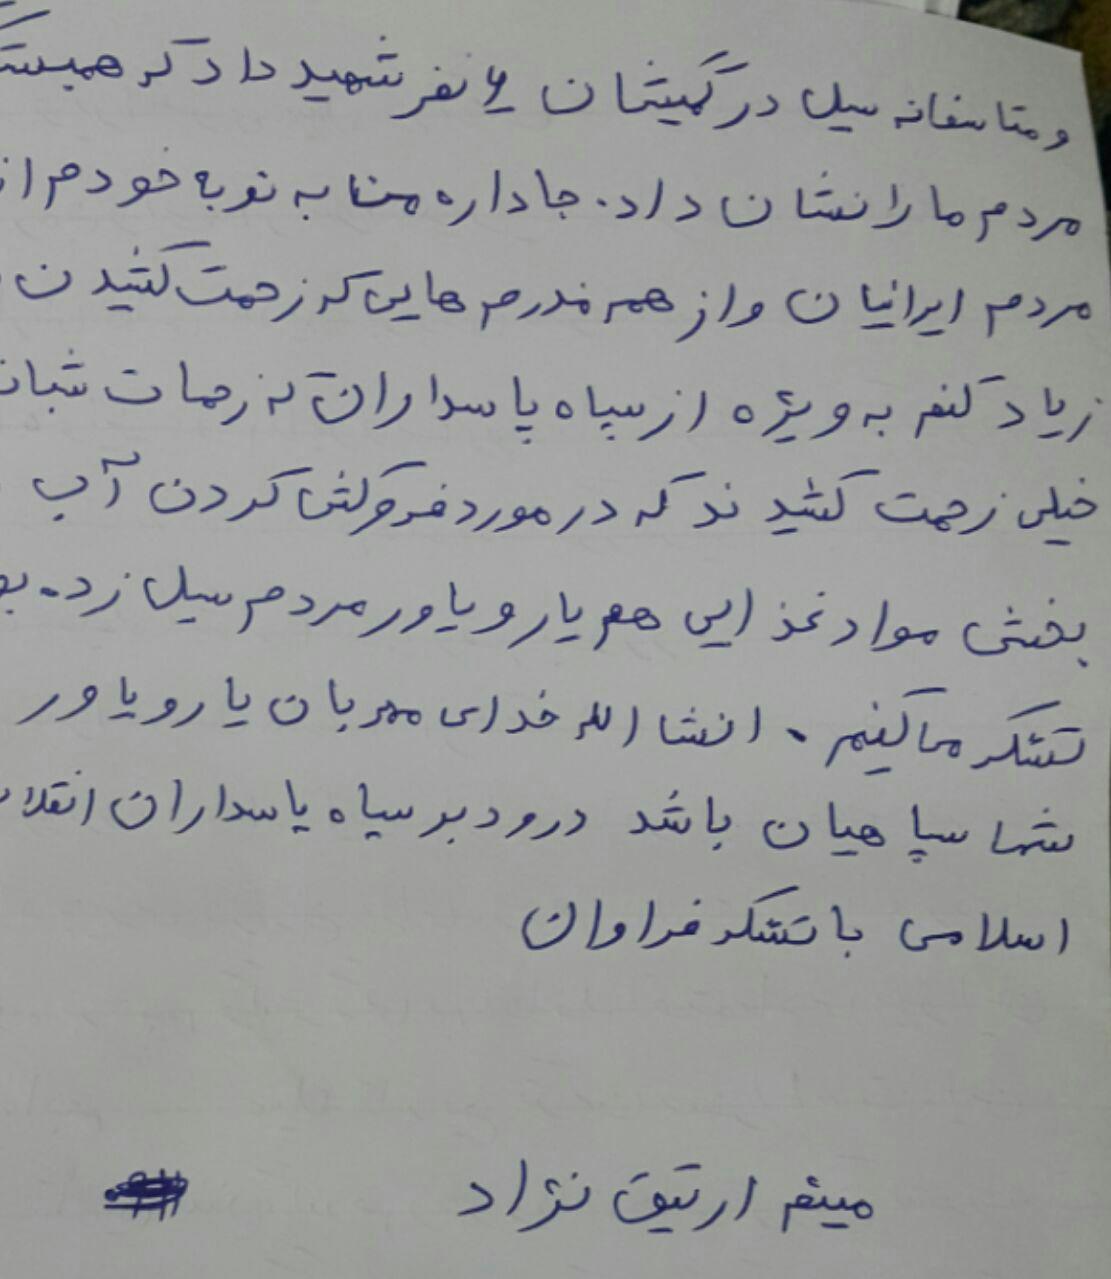 و متاسفانه سیل در گمیشان ۶ نفر شهید داد که
مردم ما را نشان داد. جا داره منا به نوبه خودم از
مردم ایرانیان و از همه مدرم هایی که زحمت کشیدن
زیاد کنم به ویژه از سپاه پاسداران که زحمات
خیلی زحمت کشید ند که در مورد فروکش کردن آب
بخش مواد غذ ایی هم یار و یاور مردم سیل زد.
تشکر ما کنیم. انشا الله خدای مهربان یا رو یا ور
شما سپا هیان باشد درود بر سپاه پاسداران
اسلامی با تشکر فراوان
میثم ارتیق نژاد